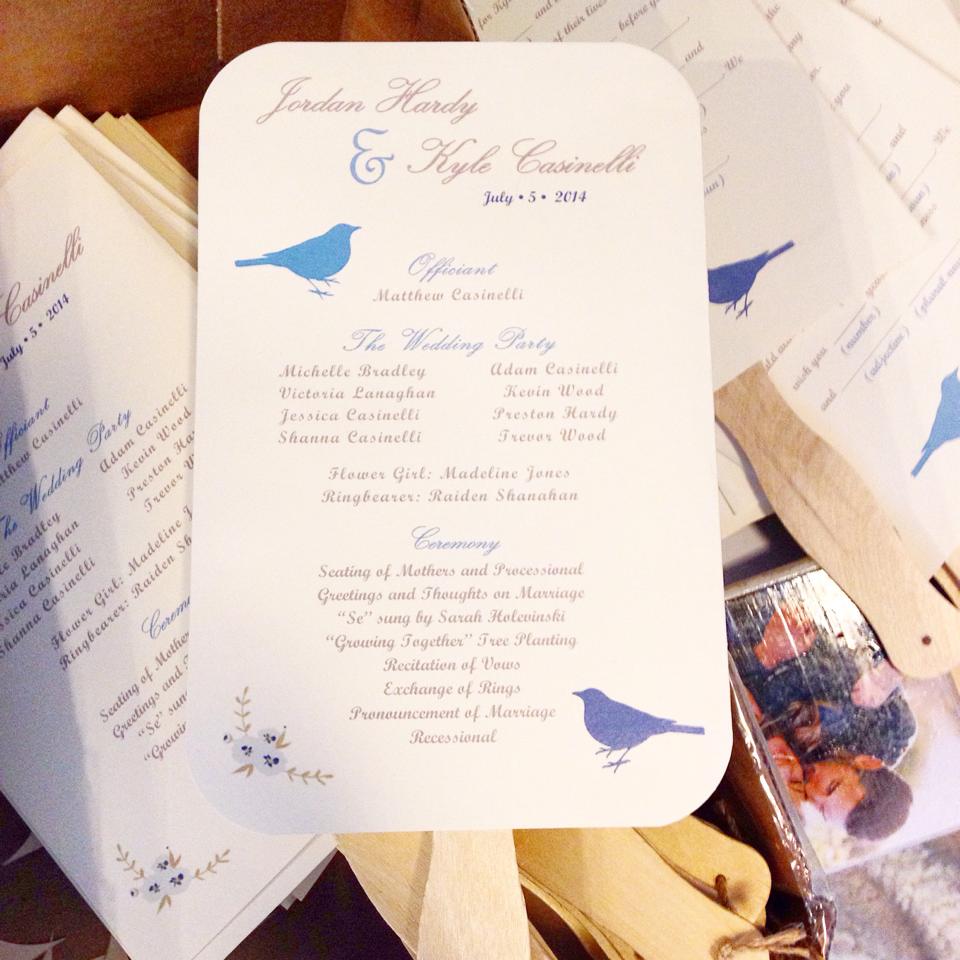 Jordan Hardy
& Kyle Casinelli
July • 5 • 2014
Officiant
Matthew Casinelli
The Wedding Party
Michelle Bradley Adam Casinelli
Victoria Lanaghan Kevin Wood
Jessica Casinelli Preston Hardy
Shanna Casinelli Trevor Wood
Flower Girl: Madeline Jones
Ringbearer: Raiden Shanahan
Ceremony
Seating of Mothers and Processional
Greetings and Thoughts on Marriage
"Se" sung by Sarah Holevinski
"Growing Together" Tree Planting
Recitation of Vows
Exchange of Rings
Pronouncement of Marriage
Recessional
Casinelli
July • 5 • 2014
Casinelli
Wedding Party
Adam Casinelli
Kevin Wood
Preston
Trevor
Bradley
Lanaghan
Casinelli
Shanna Casinelli
Flower Girl: Madeline
Ringbearer: Raiden
Seating of Mothers
Greetings and
"Se"
of their lives
before
and
We
you
and
We
wish you
(number)
and
(adjective)
(plural